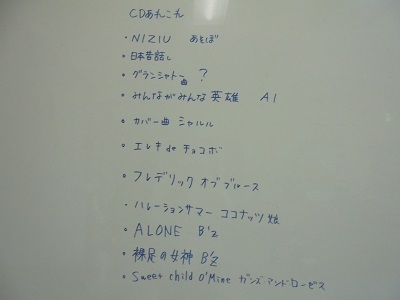 CDあれこれ
・NIZIU あそぼ
・日本昔話し
・グランシャトー ?
・みんながみんな英雄 AI
・カバー曲 シャルル
・エレキ de チョコボ
・フレデリック オブ ブルース
・ハレーションサマー ココナッツ娘
・ALONE B'z
・裸足の女神 B'z
・Sweet child O'Mine ガンズアンドローゼス